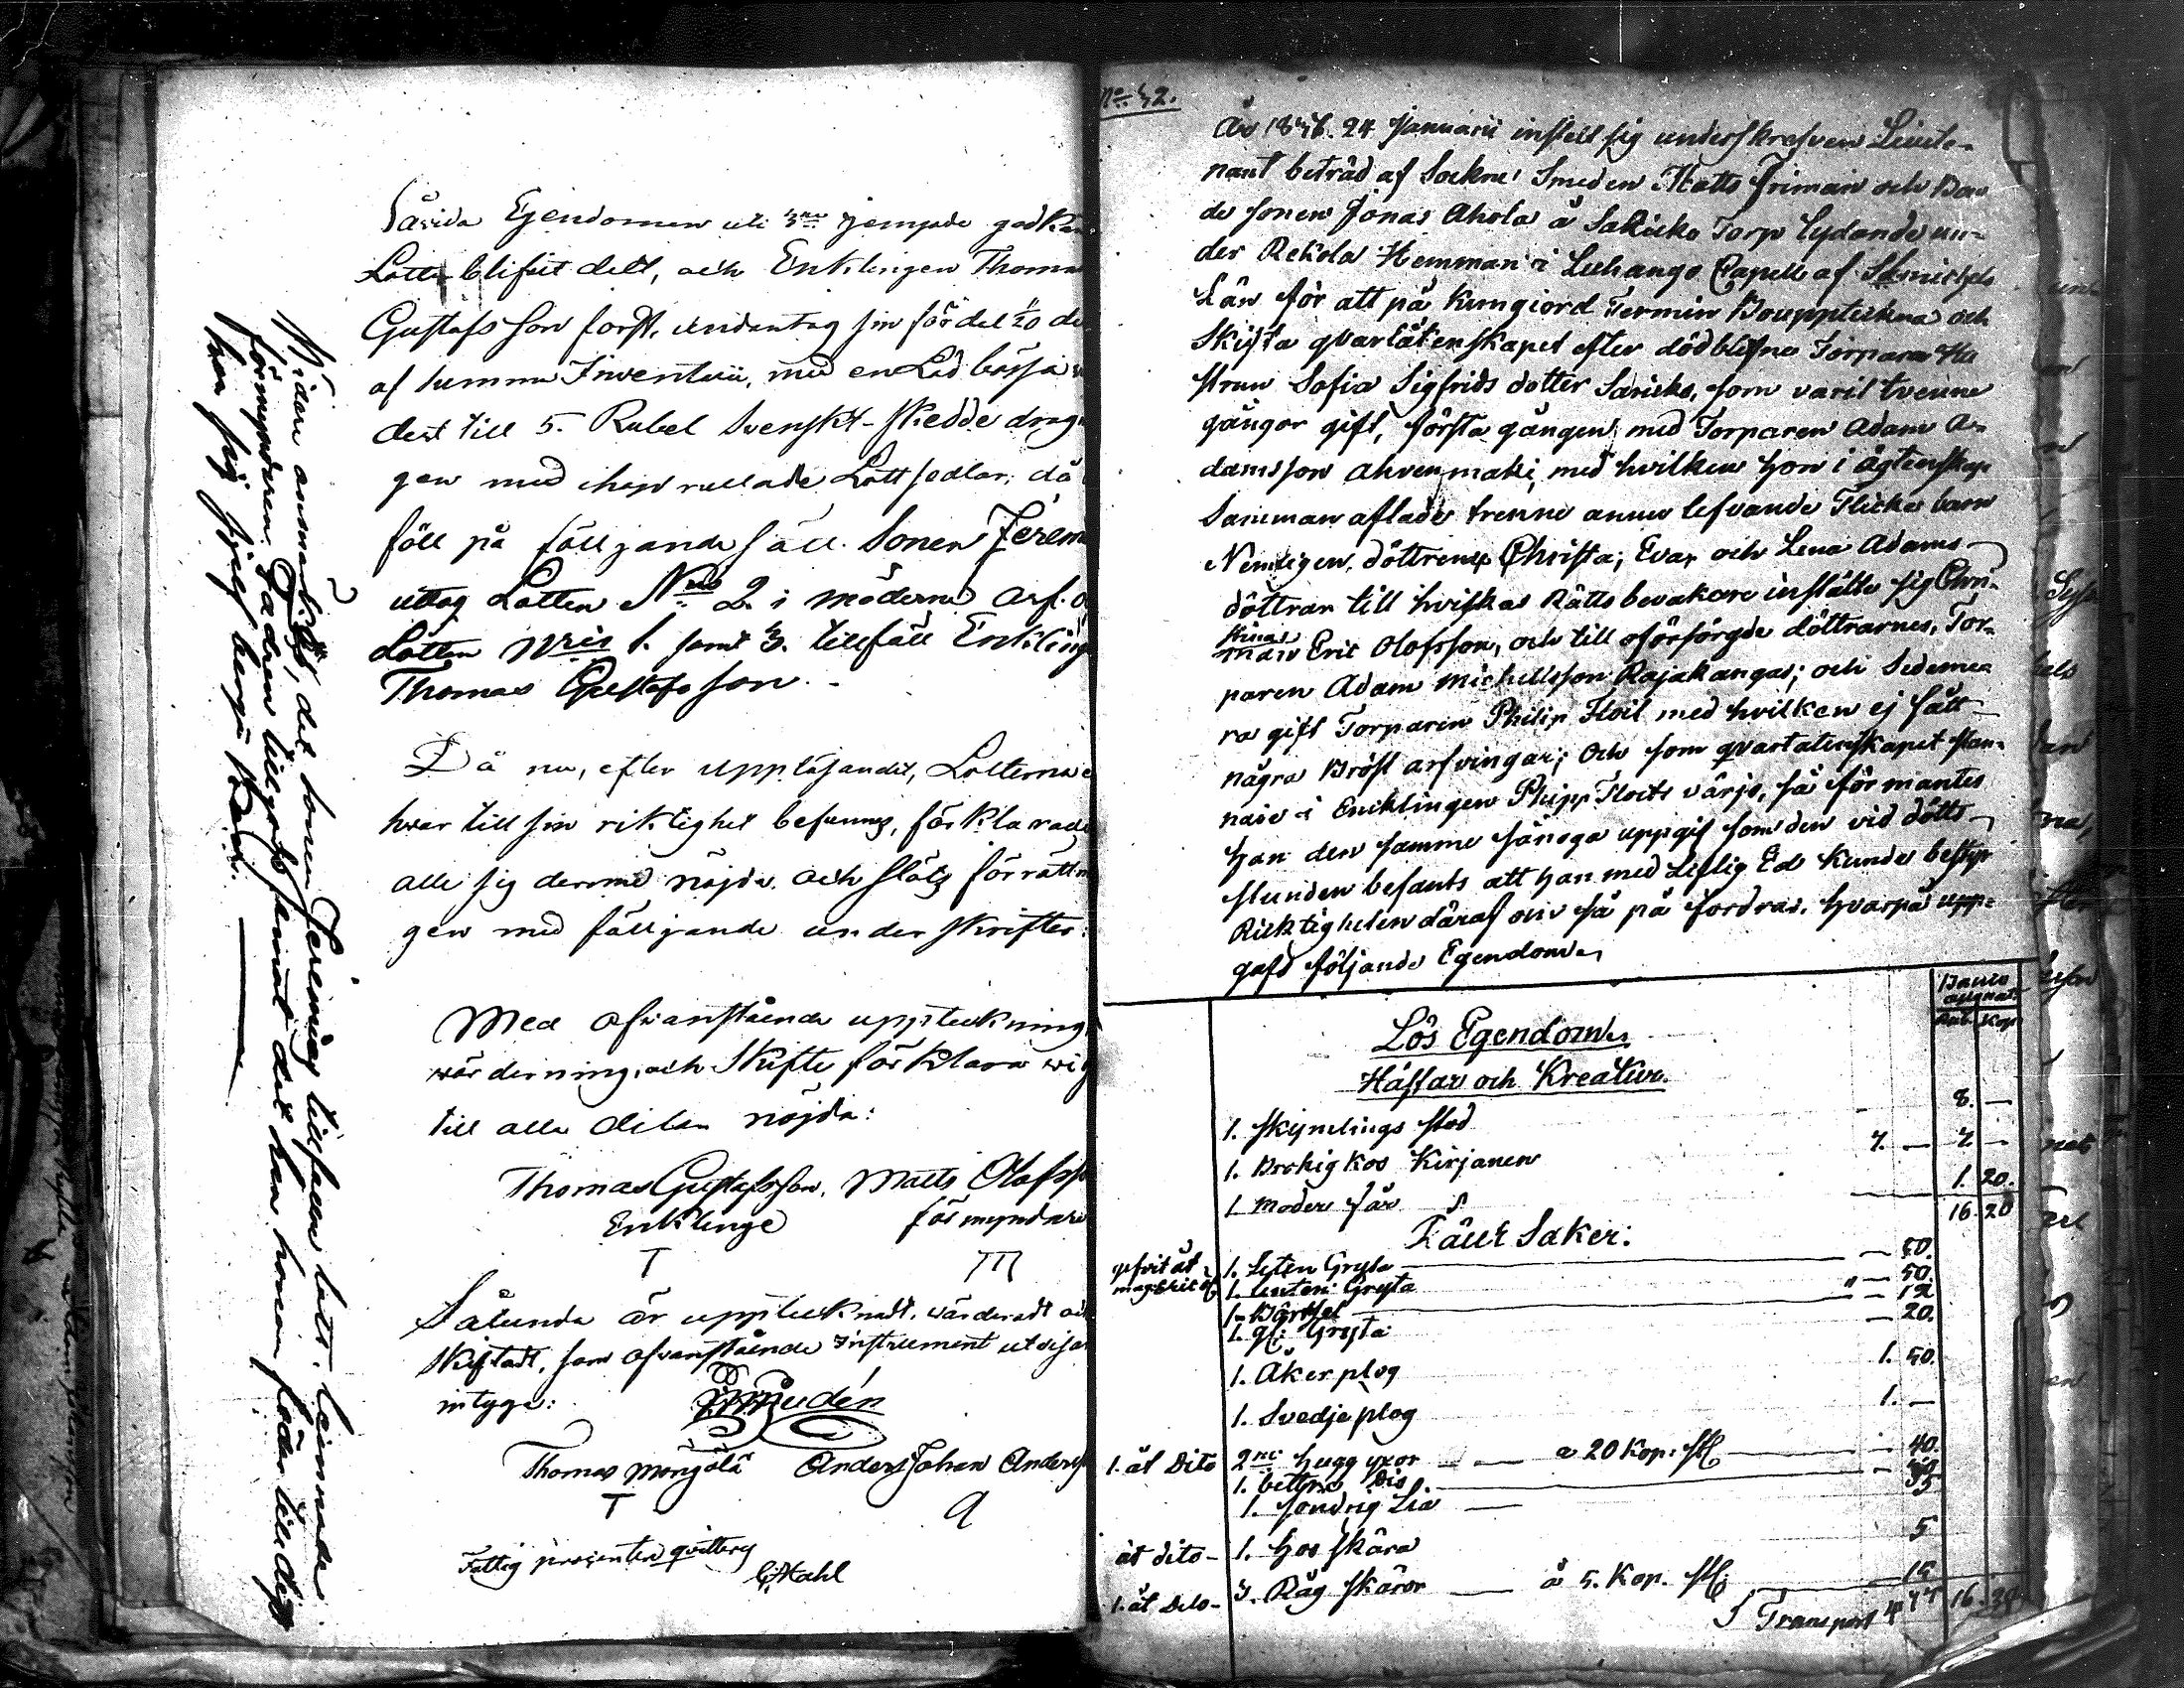 Särida Egendomen uti 3ne jempade godkän
Lotter blifvit delt, och Enklingen Thomas
Gustafsson först, undantag sin fördel 1/20 de
af summa Inventarii, med en Lod bössa
dert till 5. Rubel Svenskt - skedde drag
gen med ihop rullade Lottsedlar, då
föll på följande sätt. Sonen Jerem
uttog Lotten Nro 2. i möderne arf.
Lotten Nris 1. samt 3. tillföll Enkling
Thomas Gustafsson.
Då nu, efter upplösandet, Lotterna
hvar till sin riktighet befunnes, förklarade
alle sig dermed nöjda, och slöts förrättn
gen med följande underskrifter:
Med ofvanstående uppteckning
värderning, och Skifte förklara vi
till alla delar nöjda:
Thomas Gustafsson, Matts Olofss
Enklinge förmyndare
T m
Sålunda är upptecknadt, värderadt och
Skiftadt, som ofvanstående Instrument utvisar
intyga:
Thomas Mörjölä Anders Johan Anders
T A
Fattig procenten qvitteras
Vidare anmärktes, det sonen Jeremias tillfallen lott, lemnades
förmyndaren Fadren tillgodo, samt det han honom föder till dess
han sig sjelf bergå kan.
No 42.
År 1846. 24 Januarii instelt sig underskrefven Lieute-
nant beträd af Sockne Smeden Matts Friman och Bon
de sonen Jonas Ahola å Saricko Torp lydande un-
der Rekola Hemman i Leehango Capell af St Michels
Län för att på Kungiord Termin Bouppteckna och
Skifta qvarlåtenskapet efter dödblefne Torpare Hu
strun Sofia Sigfrids dotter Saricko, som varit tvenne
gångor gift, första gången med Torparen Adam A-
damsson Ahvenmäki, med hvilken hon i ägtenskap
Samman aflade trenne ännu lefvande Flicke barn
Nemligen, döttrene Christa, Eva, och Lena Adams
döttrar till hvilkas Rätts bevakare inställte sig Chri-
stinas
man Eric Olofsson, och till oförsörgde döttrarnes, Tor-
paren Adam Michelsson Rajakangas; och Sedemea
ra gift Torparen Philip Floit med hvilken ej fått
några Bröst arfvingar; Och som qvarlatenskapet stan-
nade i Encklingen Phipp Floits värjo, så förmantes
han den samme sånoga uppgif som den vid dötts
stunden befants att han med Liflig Ed kunde bestyr
Ricktigheten däraf om så på fordras. hvarpå upp-
gafs följande Egendom
Banco
assignat:
Rub. Kop
Lös Egendom
Hästar och Kreatur.
1. Skymlings stod 8. —
1. Brokig Koo Kirjanen 7. — 7 —
1 moder får 1. 20.
16. 20
Räut Saker:
1. Liten Gryta — 50.
1. Gryta — 50.
1. — 12
1. Gryta — 20.
1. Åker plog 1. 50.
1. Svedje plog 1. —
1. åt Dito 2ne hugg yxor — a 20 Kop: St — 40.
1. bettre Dio
1. söndrig Lia
åt dito - 1. höö skära 5
1. åt Dito - 3. Råg skäror — å 5. Kop. St: 15
Transport 4 77 16. 20